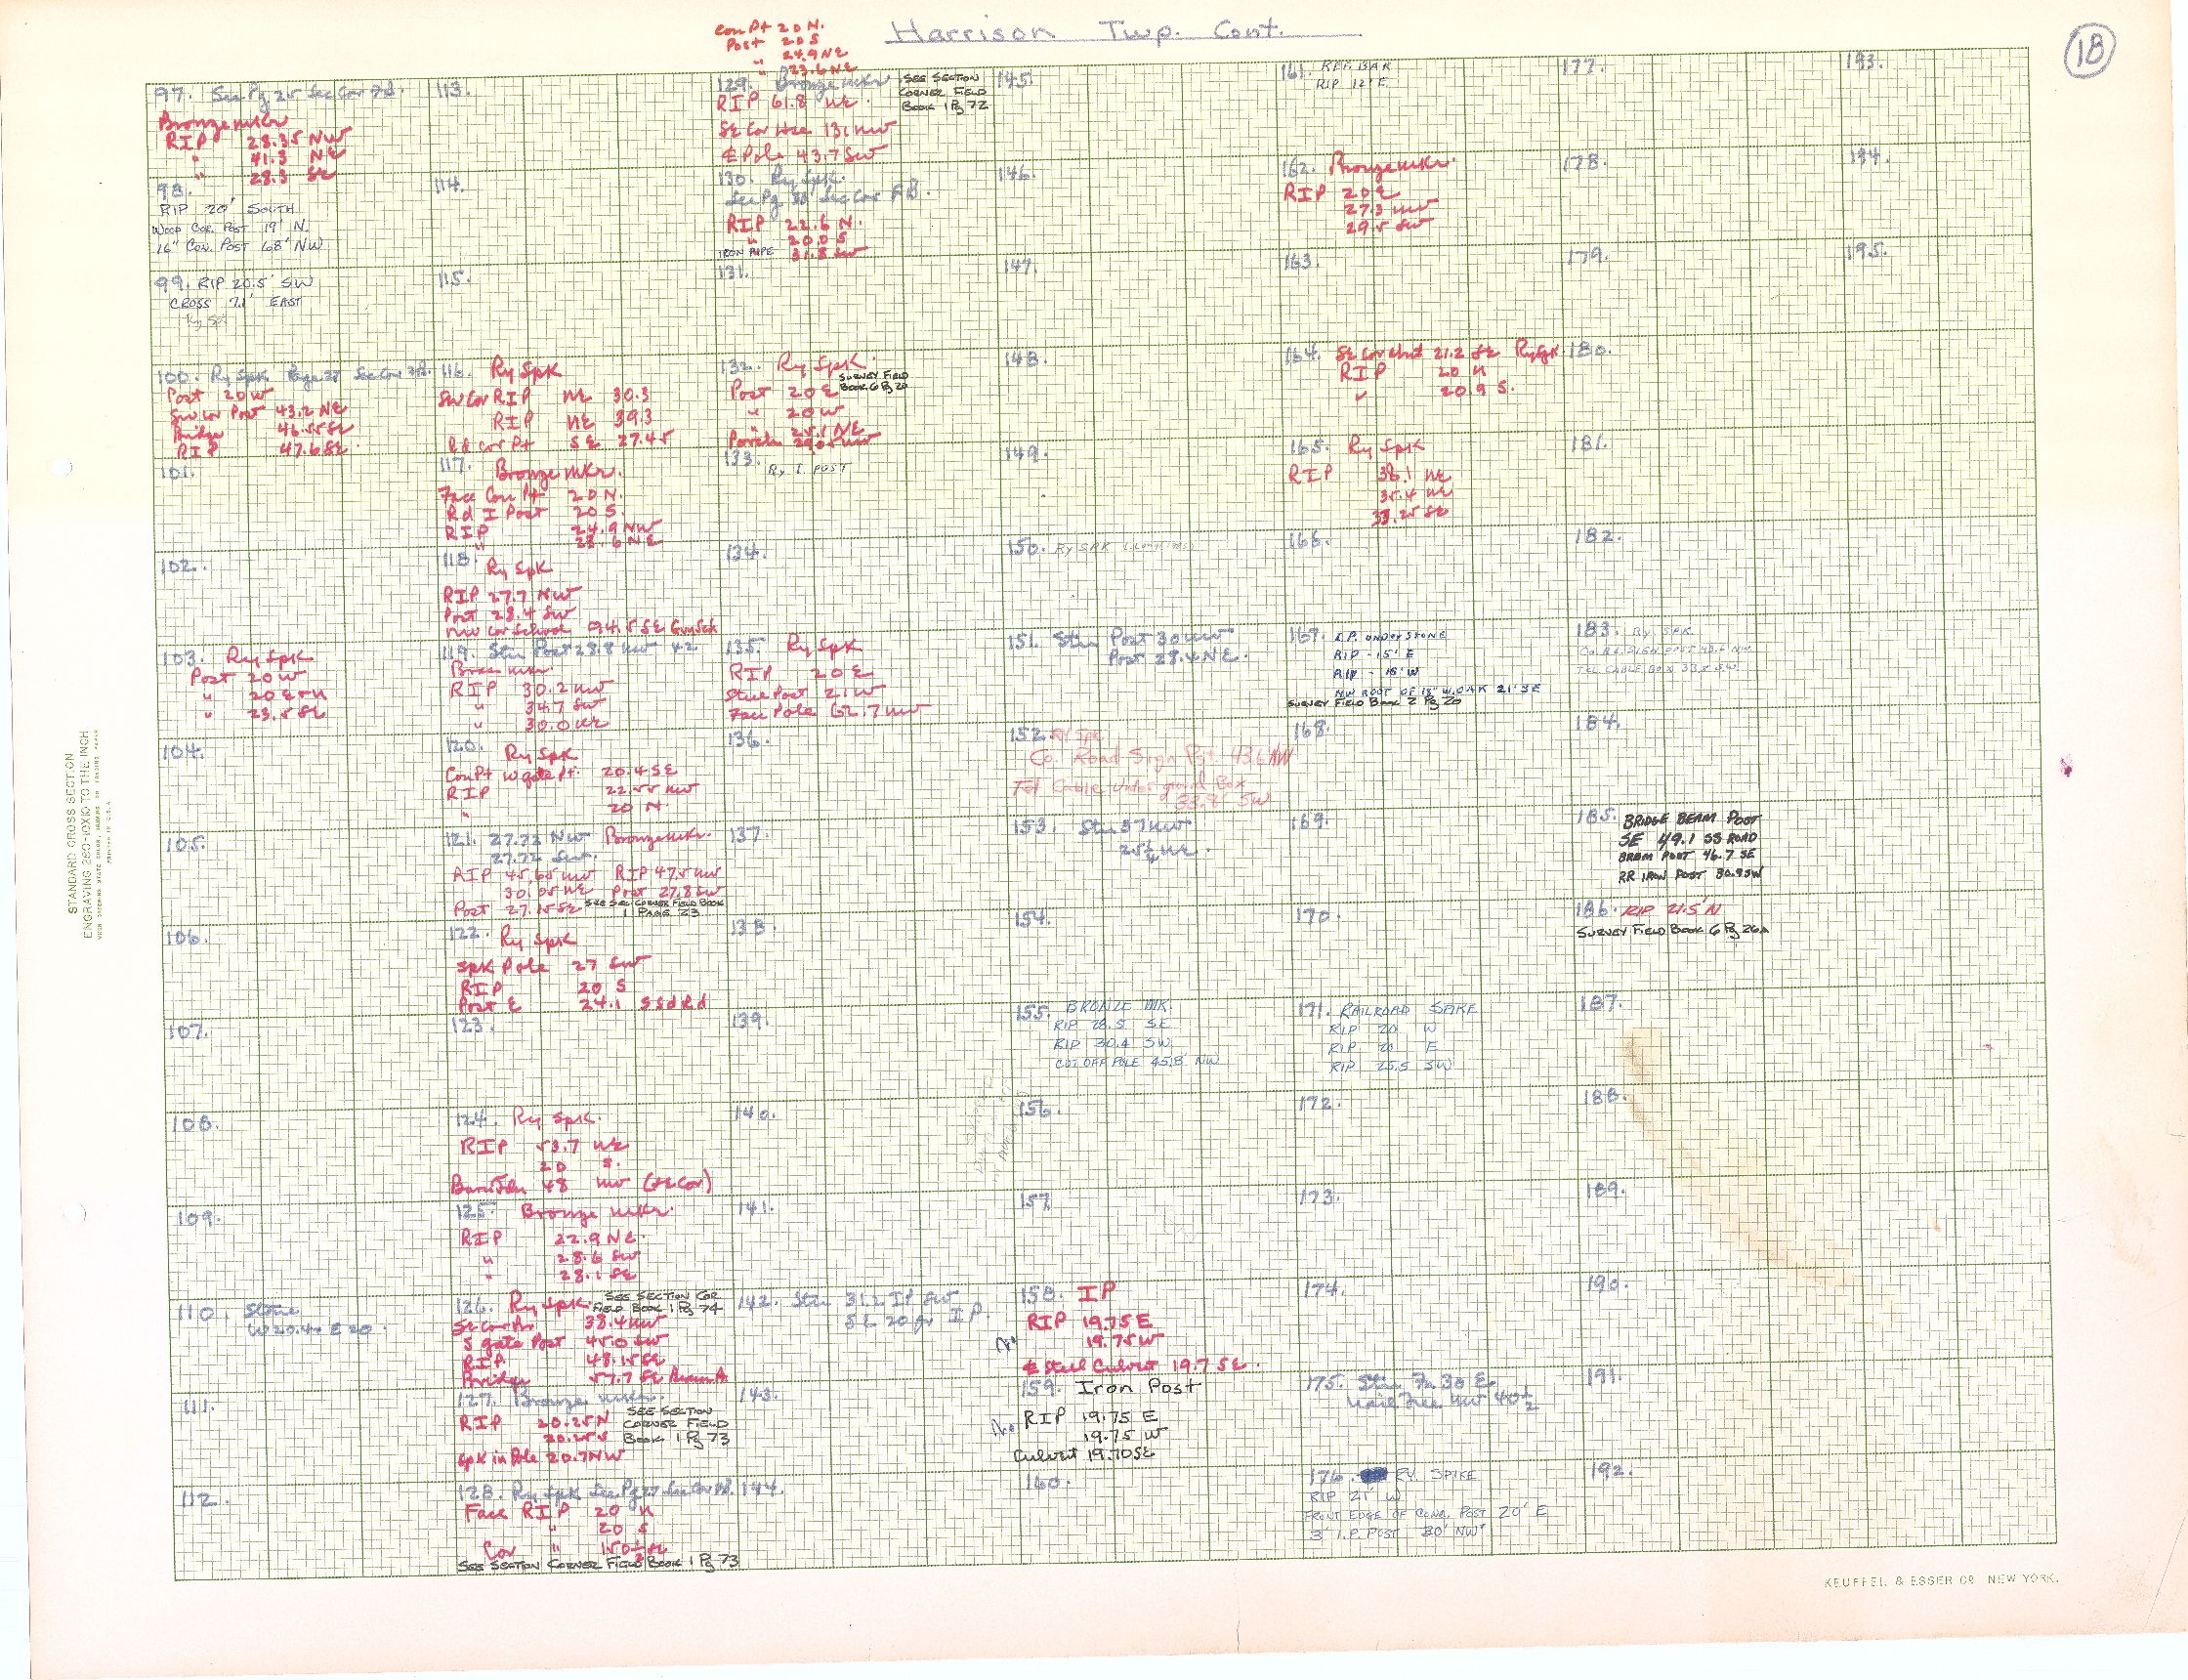 Harrison Twp. Cont.
18
97. See Pg 25 Sec Cor F.B.
Bronze mkr
RIP 28.35 NW
" 41.3 NE
" 28.3 SE
98.
RIP 20' SOUTH
WOOD COR. POST 19' N.
16" CON. POST 68' NW
99. RIP 20.5' SW
CROSS 7.1' EAST
Ry Spk
100. Ry Spk Page 27 Sec Cor F.B.
Post 20 W
SW Cor Post 43.2 NE
Bridge 46.55 SE
RIP 47.6 SE
101.
102.
103. Ry Spk
Post 20 W
" 20 E
" 23.5 SE
104.
105.
106.
107.
108.
109.
110. Stone
W 20.4 E 20
111.
112.
113.
114.
115.
116. Ry Spk
SW Cor RIP NE 30.3
RIP NE 39.3
Rd Cor Pt SE 27.45
117. Bronze mkr.
Face Con Pt 20 N.
Rd I Post 20 S.
RIP 24.9 NW
" 23.6 NE
118. Ry Spk
RIP 27.7 NW
Post 28.4 SW
NW Cor School 94.5 SE
119. Stn Post 28.8 NW 42
Bronze mkr.
RIP 30.2 NW
" 34.7 SW
" 30.0 NE
120. Ry Spk
Con Pt W gate Pt. 20.4 SE
RIP 22.55 NW
" 20 N
121. 27.72 NW Bronze mkr.
27.72 SW.
RIP 45.65 NW RIP 47.5 NW
30.05 NE Post 27.8 SW
Post 27.15 SE SEE SEC. CORNER FIELD BOOK
1 PAGE 23
122. Ry Spk
Spk Pole 27 SW
RIP 20 S
Post E 24.1 S Sd Rd
123.
124. Ry Spk.
RIP 53.7 NE
20 S.
48 NW (SE Cor)
125. Bronze mkr.
RIP 22.9 NE.
" 28.6 SW
" 28.1 SE
126. Ry Spk. SEE SECTION COR
FIELD BOOK 1 Pg 74
38.4 NW
S gate Post 45.0 SW
RIP 48.15 SE
Bridge 57.7 SE
127. Bronze mkr.
SEE SECTION
RIP 20.25 N CORNER FIELD
20.25 S BOOK 1 Pg 73
Spk in Pole 20.7 NW
128. Ry Spk See Pg 27 Sec Cor F.B.
Face RIP 20 N
" 20 S
Cor " 150½ SE
SEE SECTION CORNER FIELD BOOK 1 Pg 73
Con Pt 20 N.
Post 20 S
" 24.9 NE
" 23.6 NE
129. Bronze mkr SEE SECTION
CORNER FIELD
BOOK 1 Pg 72
RIP 61.8 NE.
SE Cor Hse 131 NW
℄ Pole 43.7 SW
130. Ry Spk.
See Pg 30 Sec Cor F.B.
RIP 22.6 N.
" 20.0 S
IRON PIPE 31.8 SW
131.
132. Ry Spk.
SURVEY FIELD
BOOK 6 Pg 20
Post 20 E
" 20 W
" 25.1 NE
133. Ry I. POST
134.
135. Ry Spk
RIP 20 E
Steel Post 21 W
Face Pole 62.7 NW
136.
137.
138.
139.
140.
141.
142. Stn 31.2 IP SW
SE 20 I.P.
143.
144.
145.
146.
147.
148.
149.
150. Ry SPK
151. Stn Post 30 NW
Post 28.4 NE.
152. Ry Spk
Co. Road Sign Pst. 43.6 NW
Tel Cable Underground Box
33.8' SW
153. Stn 37 NW
25¼ NE.
154.
155. BRONZE MK.
RIP 28.5 SE
RIP 30.4 SW
CUT OFF POLE 45.8' NW
156.
157.
158. IP
RIP 19.75 E
19.75 W
℄ Steel Culvert 19.7 SE.
159. Iron Post
No RIP 19.75 E
19.75 W
Culvert 19.70 SE
160.
161. REF. BAR
RIP 12' E
162. Bronze mkr.
RIP 20 E
27.3 NW
29.5 SW
163.
164. SE Cor Abut 21.2 SE Ry Spk
RIP 20 N
" 20.9 S.
165. Ry Spk
RIP 38.1 NE
35.4 NE
33.25 SE
166.
167. I.P. UNDER STONE
RIP - 15' E
RIP - 15' W
NW ROOT OF 18" W. OAK 21' SE
SURVEY FIELD BOOK 2 Pg 20
168.
169.
170.
171. RAILROAD SPIKE
RIP 20 W
RIP 20 E
RIP 25.5 SW
172.
173.
174.
175. Stn Fn 30 E.
Nail Tree NW 40½
176. RY. SPIKE
RIP 21' W
FRONT EDGE OF CONC. POST 20' E
3' I.P. POST 30' NW
177.
178.
179.
180.
181.
182.
183. Ry. SPK.
CO. RD. SIGN POST 43.6 NW
TEL CABLE BOX 33.8 SW
184.
185. BRIDGE BEAM POST
SE 49.1 SS ROAD
BEAM POST 46.7 SE
RR IRON POST 30.9 SW
186. RIP 21.5' N
SURVEY FIELD BOOK 6 Pg 26A
187.
188.
189.
190.
191.
192.
193.
194.
195.
STANDARD CROSS SECTION
ENGRAVING 260-10X10 TO THE INCH
KEUFFEL & ESSER CO. NEW YORK.